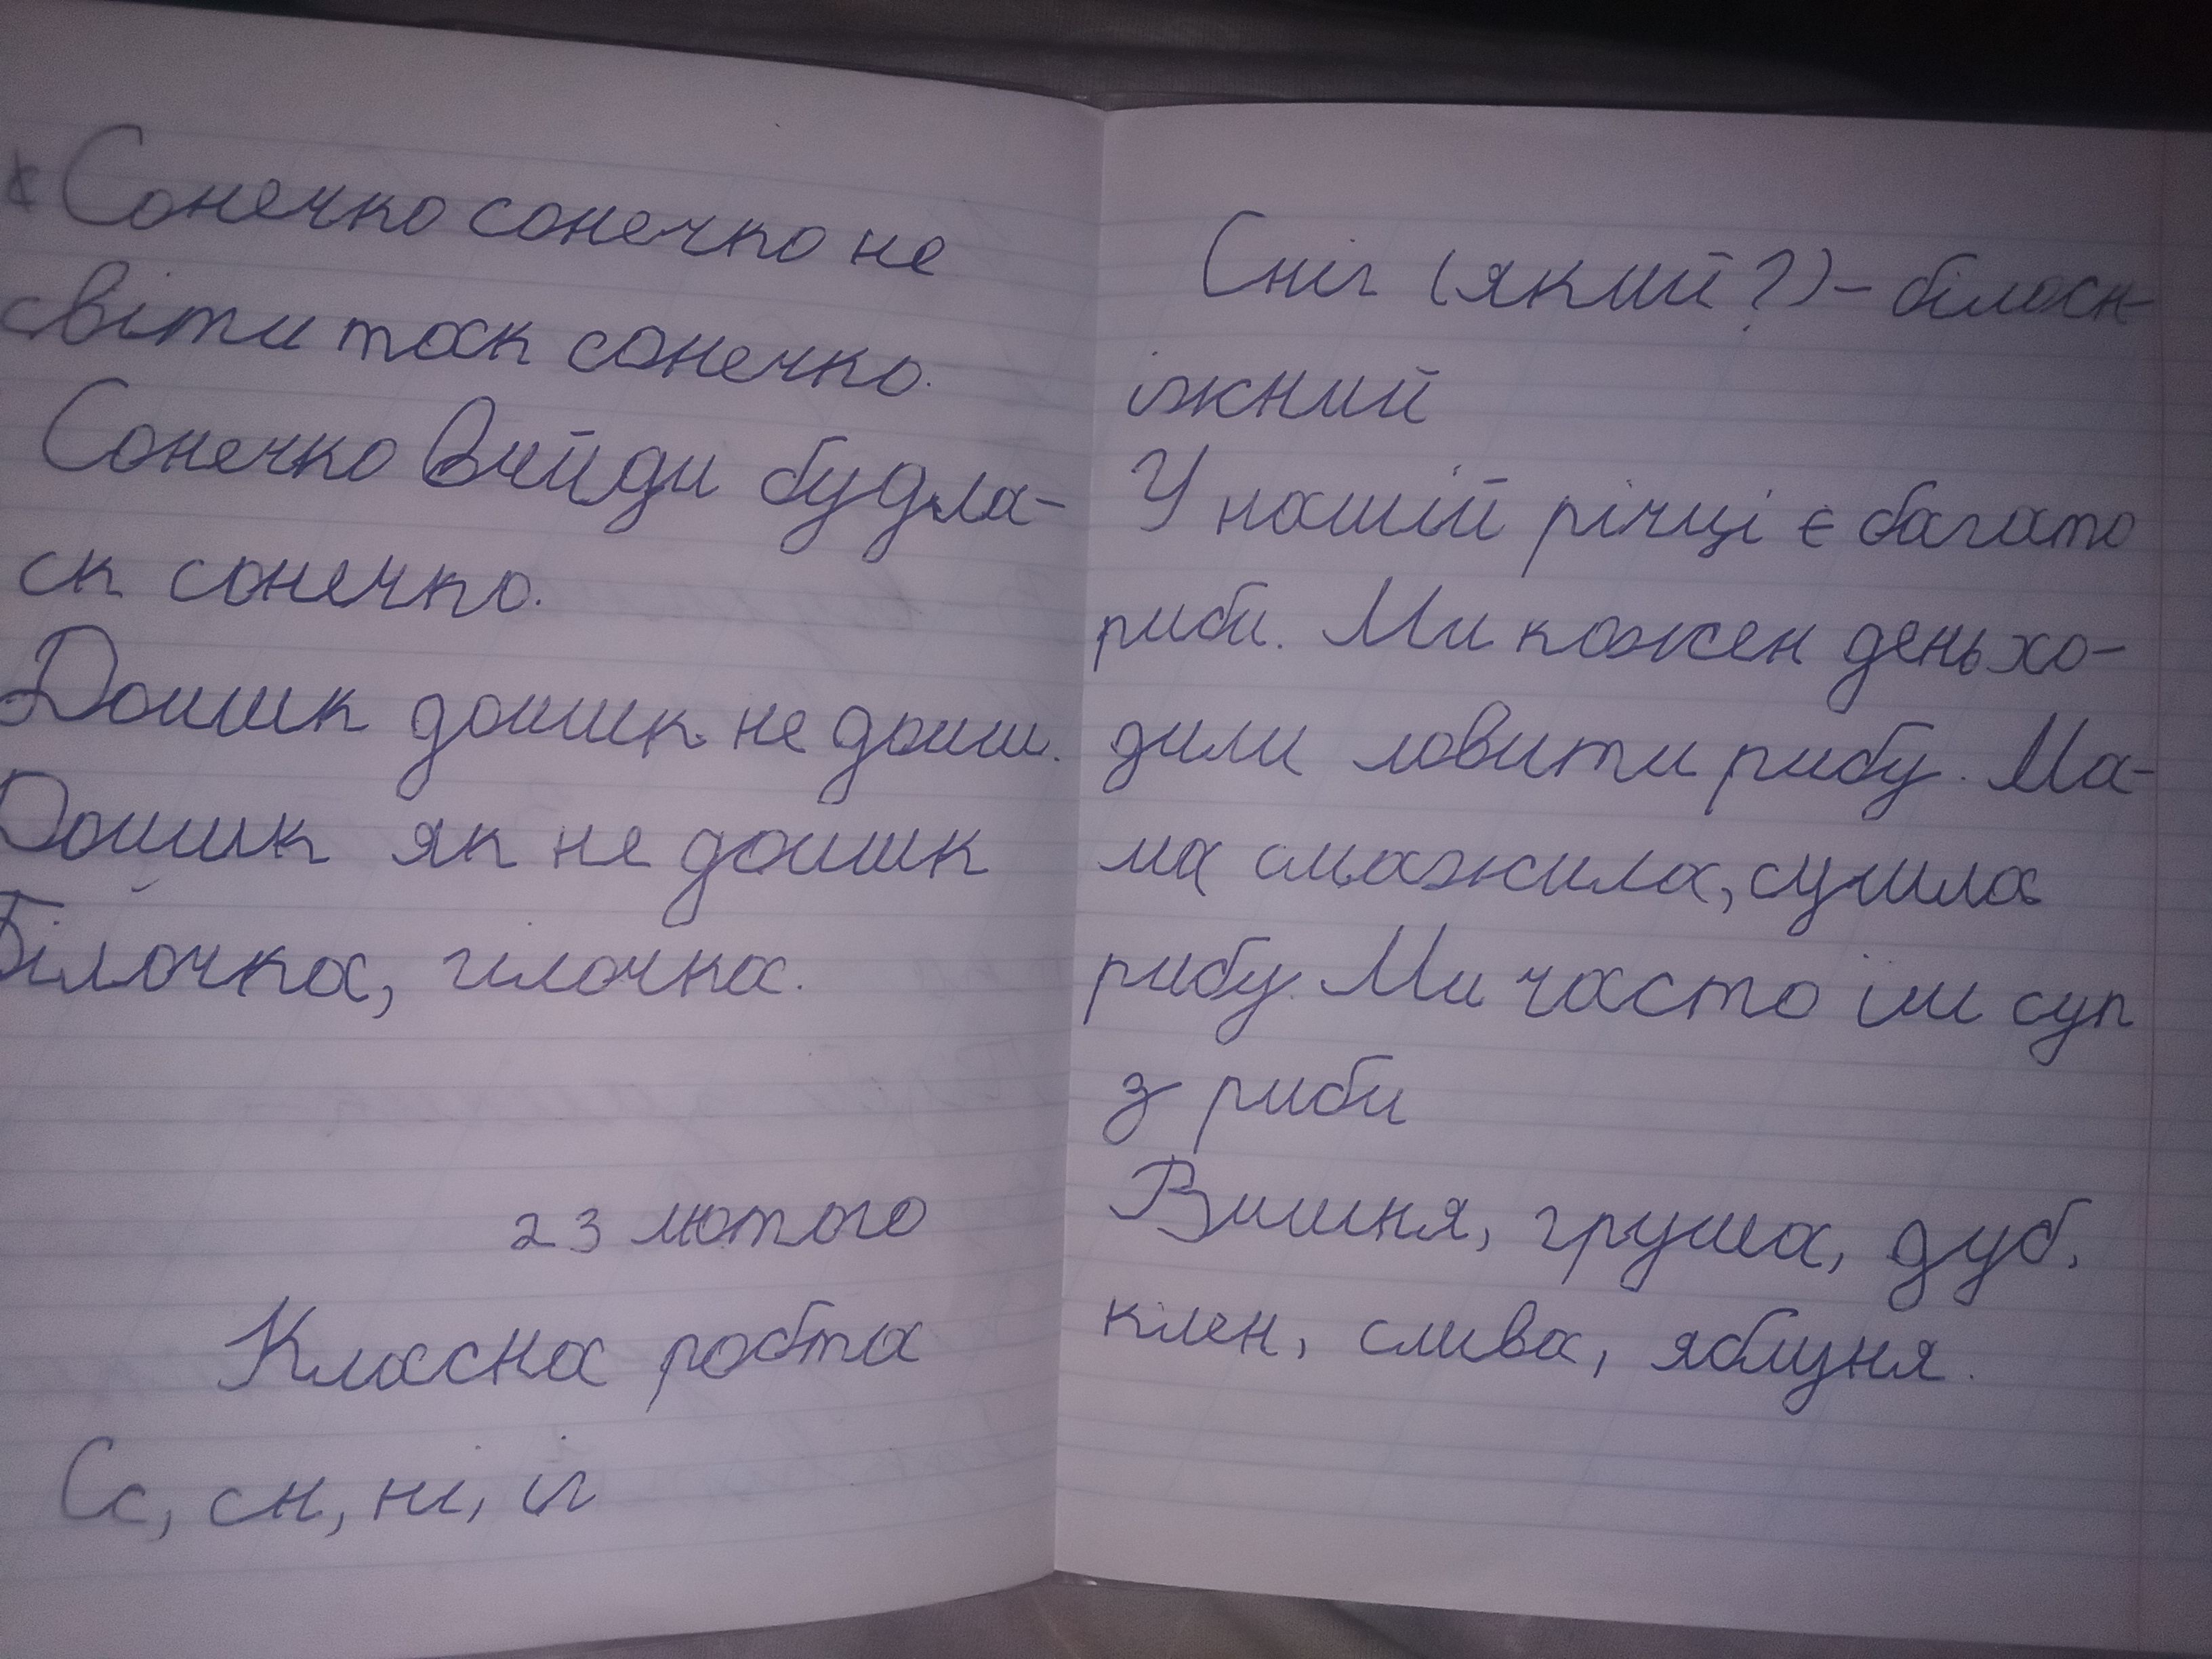 Сонечко сонечко не
світи так сонечко.
Сонечко Вийди будла-
ск сонечко.
Дошик дошик не дош.
Дошик як не дошик
Білочка, гілочка.
23 лютого
Класна робта
Сс, сн, ні, іг
Сніг (який?) - білосн-
іжний
У нашій річці є багато
риби. Ми кожен день хо-
дили ловити рибу. Ма-
ма смажила, сушила
рибу. Ми часто їли суп
з риби
Вишня, груша, дуб,
клен, слива, яблуня.